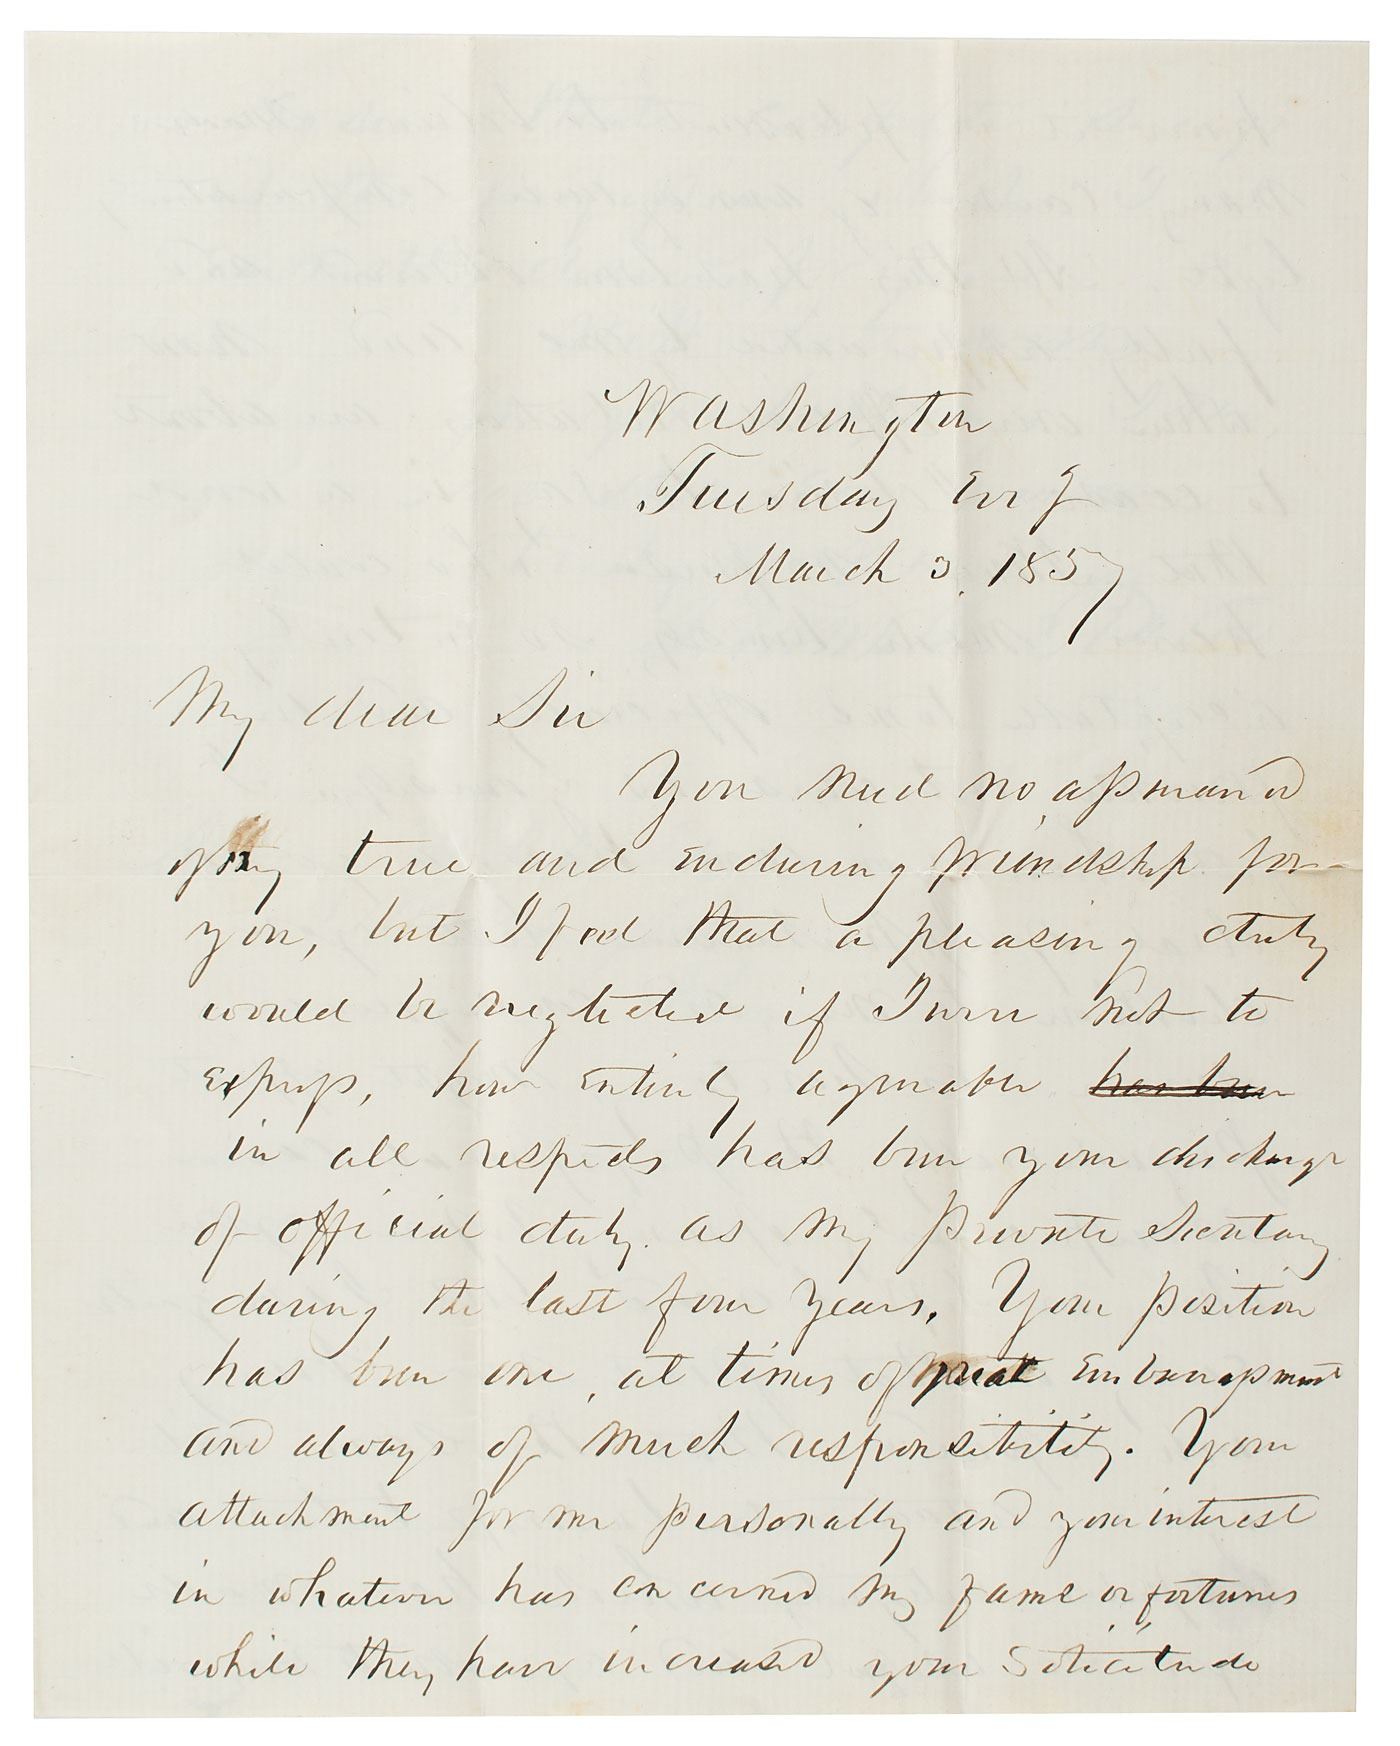 Washington
Tuesday Evg
March 3. 1857
My dear Sir
You need no assurance
of my true and enduring friendship for
you, but I feel that a pleasing duty
would be neglected if I were not to
express, how entirely agreeable has been
in all respects has been your discharge
of official duty. as my Private Secretary
during the last four years. Your position
has been one, at times of great embarrassment
and always of much responsibility. Your
attachment for me personally and your interest
in whatever has concerned my fame or fortunes
while they have increased your solicitude